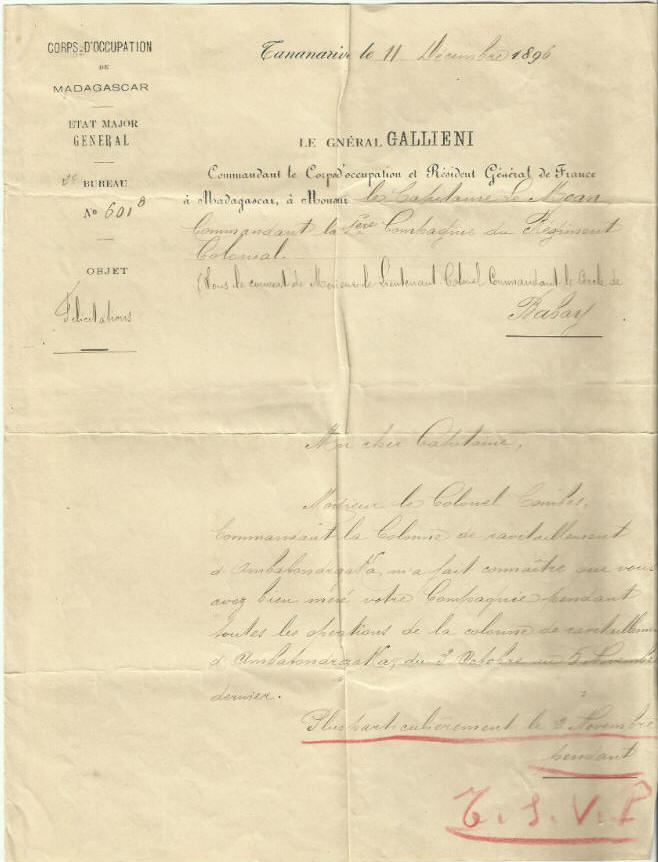 CORPS D'OCCUPATION
DE
MADAGASCAR
ETAT MAJOR
GENERAL
2e BUREAU
No 601 B
OBJET
Félicitations
Tananarive le 11 Décembre 1896
LE GNÉRAL GALLIENI
Commandant le Corps d'occupation et Résident Général de France
à Madagascar, à Monsieur le Capitaine Le Moan
Commandant la 1ère Compagnie du Régiment
Colonial.
(Sous le couvert de Monsieur le Lieutenant Colonel Commandant le Cercle de
Babay
Mon cher Capitaine,
Monsieur le Colonel Combes,
Commandant la Colonne de ravitaillement
d'Ambatondrazaka, m'a fait connaître que vous
avez bien mené votre Compagnie pendant
toutes les opérations de la colonne de ravitaillement
d'Ambatondrazaka, du 3 Octobre au 5 Novembre
dernier.
Plus particulièrement le 3 Novembre
pendant
T. S. V. P